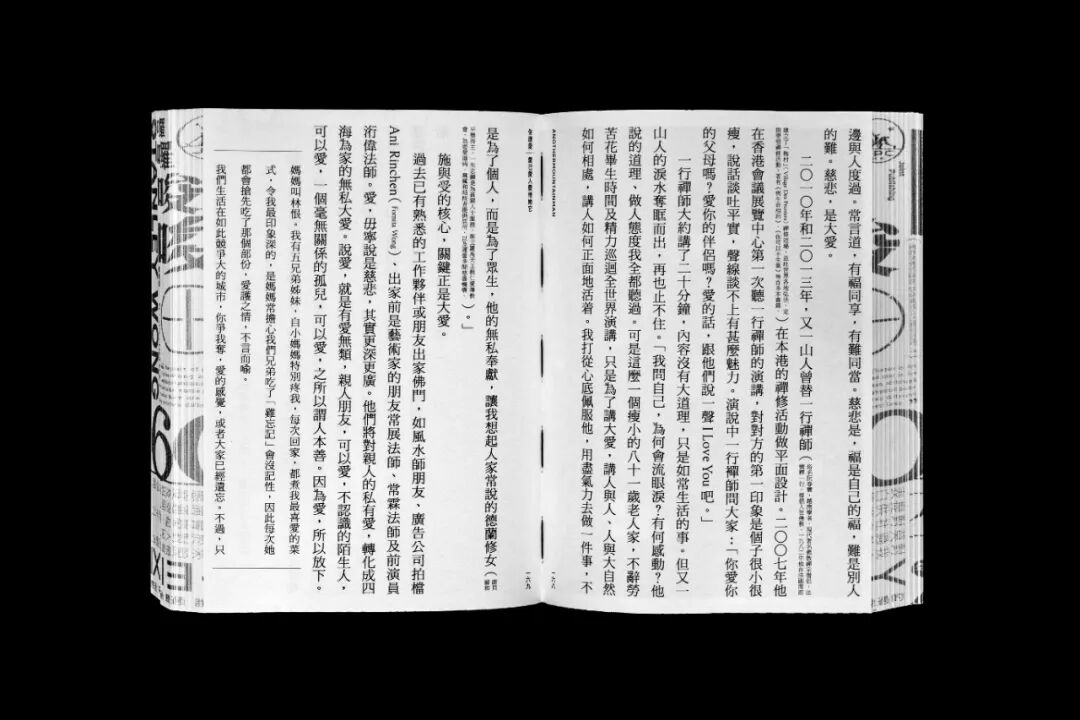 邊與人度過。常言道，有福同享，有難同當。慈悲是，福是自己的福，難是別人
的難。慈悲，是大愛。
二〇一〇年和二〇一三年，又一山人曾替一行禪師（
）在本港的禪修活動做平面設計。二〇〇七年他
在香港會議展覽中心第一次聽一行禪師的演講，對對方的第一印象是個子很小很
瘦，說話談吐平實，聲線談不上有甚麼魅力。演說中一行禪師問大家：「你愛你
的父母嗎？愛你的伴侶嗎？愛的話，跟他們說一聲 I Love You 吧。」
一行禪師大約講了二十分鐘，內容沒有大道理，只是如常生活的事。但又一
山人的淚水奪眶而出，再也止不住。「我問自己，為何會流眼淚？有何感動？他
說的道理、做人態度我全都聽過。可是這麼一個瘦小的八十一歲老人家，不辭勞
苦花畢生時間及精力巡迴全世界演講，只是為了講大愛，講人與人、人與大自然
如何相處，講人如何正面地活着。我打從心底佩服他，用盡氣力去做一件事，不
ANOTHERMOUNTAINMAN
一六八
一六九
是為了個人，而是為了眾生，他的無私奉獻，讓我想起人家常說的德蘭修女（
）。」
施與受的核心，關鍵正是大愛。
過去已有熟悉的工作夥伴或朋友出家佛門，如風水師朋友、廣告公司拍檔
Ani Rinchen（Fonsia Wong）、出家前是藝術家的朋友常展法師、常霖法師及前演員
洐偉法師。愛，毋寧說是慈悲，其實更深更廣。他們將對親人的私有愛，轉化成四
海為家的無私大愛。說愛，就是有愛無類，親人朋友，可以愛，不認識的陌生人，
可以愛，一個毫無關係的孤兒，可以愛，之所以謂人本善。因為愛，所以放下。
媽媽叫林恨。我有五兄弟姊妹，自小媽媽特別疼我，每次回家，都煮我最喜愛的菜
式，令我最印象深的，是媽媽常擔心我們兄弟吃了「雞忘記」會沒記性，因此每次她
都會搶先吃了那個部份，愛護之情，不言而喻。
我們生活在如此競爭大的城市，你爭我奪，愛的感覺，或者大家已經遺忘。不過，只